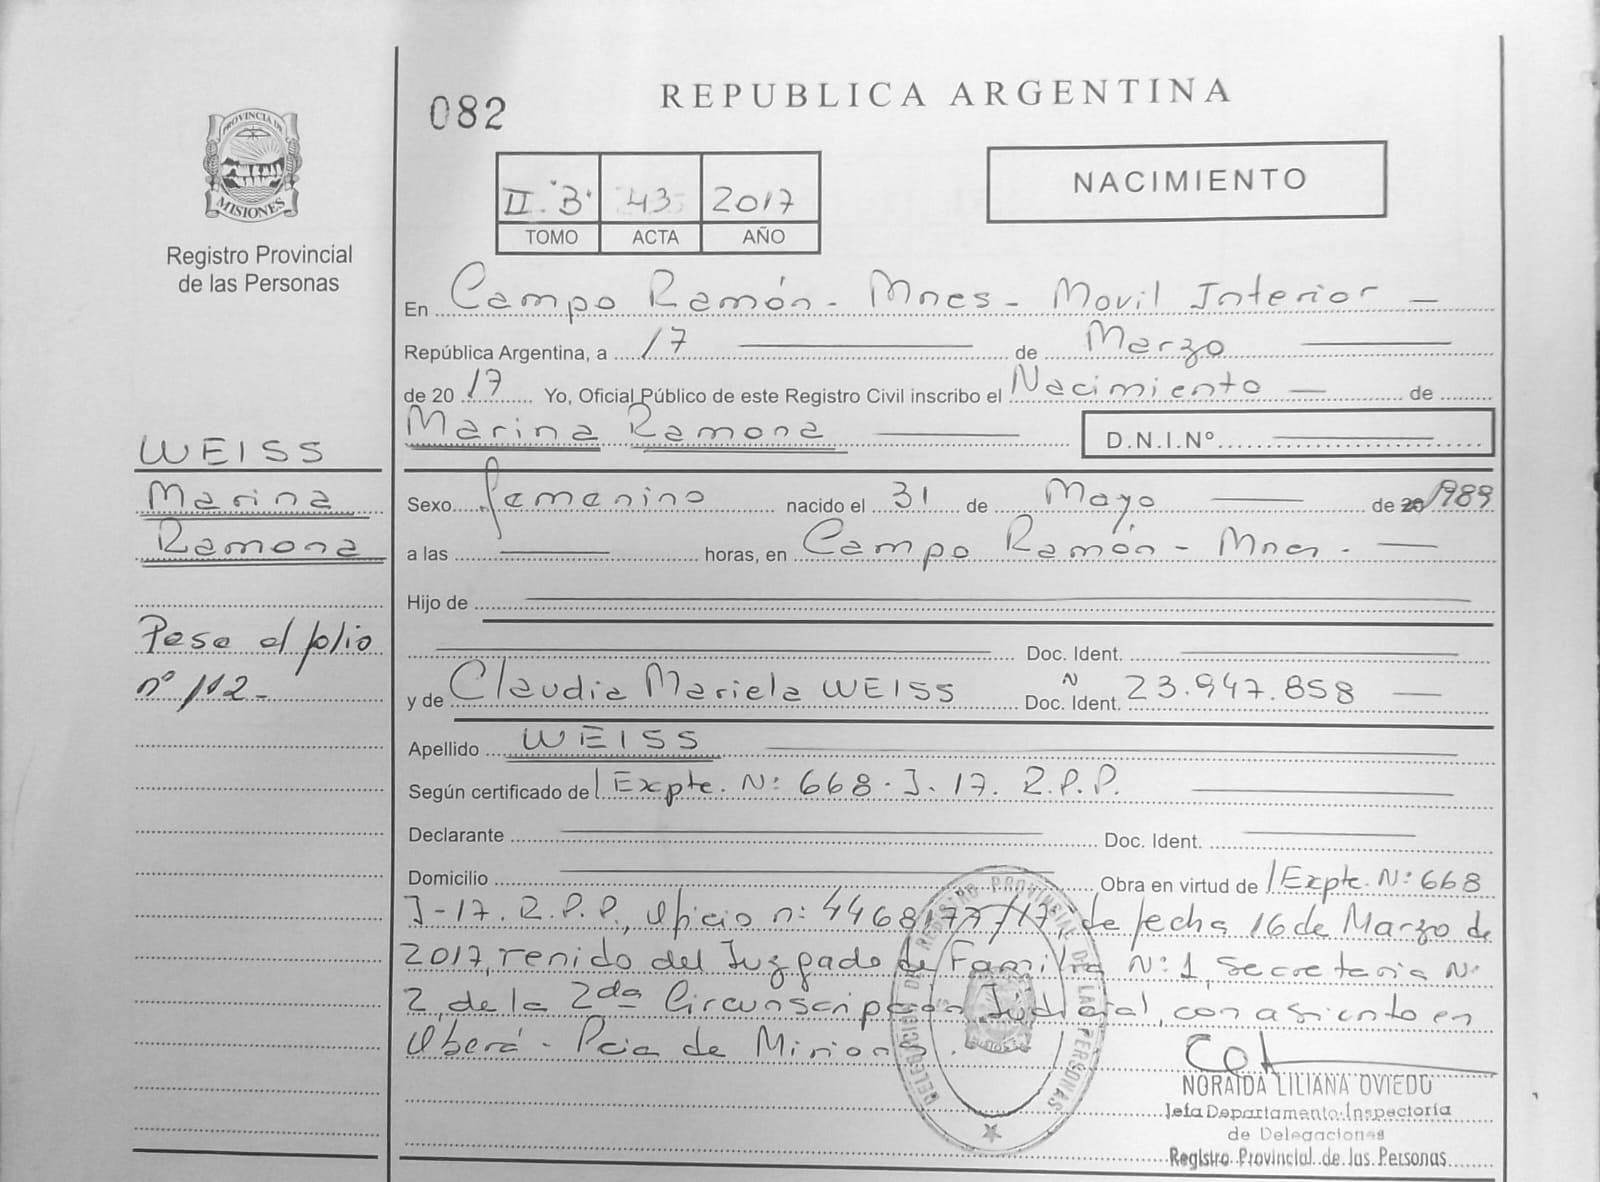 082
REPUBLICA ARGENTINA
PROVINCIA DE
MISIONES
Registro Provincial
de las Personas
II "B" 43 2017
TOMO ACTA AÑO
NACIMIENTO
En Campo Ramón - Mnes - Movil Interior
República Argentina, a 17 de Marzo
de 20 17 Yo, Oficial Público de este Registro Civil inscribo el Nacimiento de
Marina Ramona D.N.I.Nº
WEISS
Marina
Ramona
Pasa al folio
nº 112-
Sexo femenino nacido el 31 de Mayo de 20 1989
a las horas, en Campo Ramón - Mnes -
Hijo de
Doc. Ident.
y de Claudia Mariela WEISS Doc. Ident. N 23.947.858
Apellido WEISS
Según certificado de Expte. N: 668-J-17. R.P.P.
Declarante Doc. Ident.
Domicilio Obra en virtud de Expte. N: 668
J-17. R.P.P, Oficio n: 4468177/17, de fecha 16 de Marzo de
2017, venido del Juzgado de Familia N: 1, Secretaria N:
2, de la 2da Circunscripcion Judicial, con asiento en
Oberá - Pcia de Misiones.
DELEGACIONES REGISTRO PROVINCIAL DE LAS PERSONAS
NORAIDA LILIANA OVIEDO
Jefa Departamento Inspectoria
de Delegaciones
Registro Provincial de las Personas